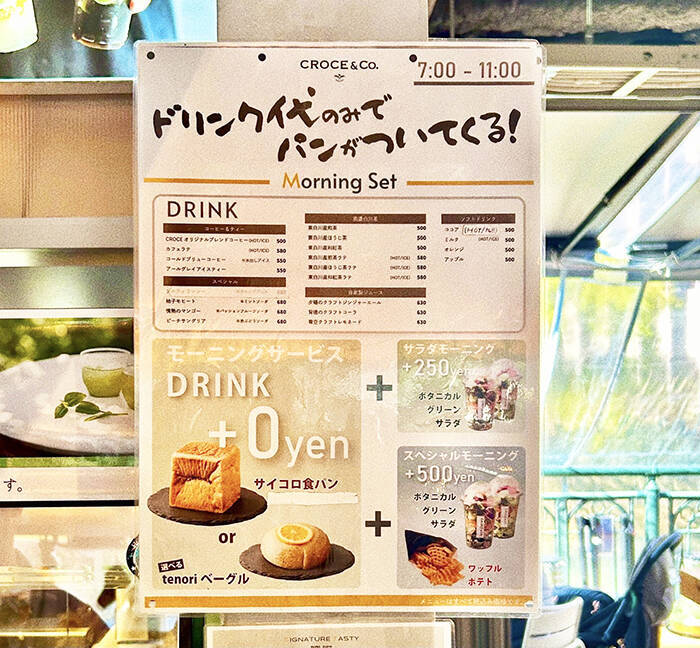 CROCE&CO.
7:00 - 11:00
ドリンク代のみで
パンがついてくる!
Morning Set
DRINK
コーヒー&ティー
CROCE オリジナルブレンドコーヒー (HOT/ICE) 500
カフェラテ (HOT/ICE) 580
コールドブリューコーヒー ※水出しアイス 550
アールグレイアイスティー 550
スペシャル
柚子モヒート ※ミントソーダ 680
情熱のマンゴー ※パッションフルーツソーダ 680
ピーチサングリア 680
東白川産煎茶 500
東白川産ほうじ茶 500
東白川産和紅茶 500
東白川産煎茶ラテ (HOT/ICE) 580
東白川産ほうじ茶ラテ (HOT/ICE) 580
東白川産和紅茶ラテ (HOT/ICE) 580
自家製ジュース
夕陽のクラフトジンジャーエール 630
背徳のクラフトコーラ 630
クラフトレモネード 630
ソフトドリンク
ココア 500
ミルク (HOT/ICE) 500
オレンジ 500
アップル 500
モーニングサービス
DRINK
+0yen
サイコロ食パン
or
選べる
tenori ベーグル
+
サラダモーニング
+250yen
ボタニカル
グリーン
サラダ
+
スペシャルモーニング
+500yen
ボタニカル
グリーン
サラダ
ワッフル
ポテト
メニューはすべて税込み価格です。
す。